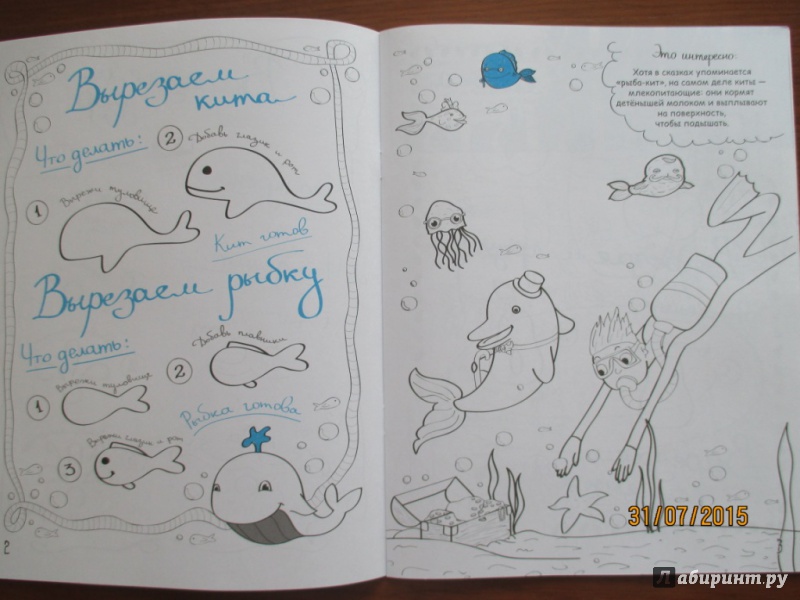 Вырезаем
кита
Что делать:
2 Добавь глазик и рот
1 Вырежи туловище
Кит готов
Вырезаем рыбку
Что делать:
2 Добавь плавники
1 Вырежи туловище
Рыбка готова
3 Вырежи глазик и рот
2
Это интересно:
Хотя в сказках упоминается
«рыба-кит», на самом деле киты —
млекопитающие: они кормят
детёнышей молоком и выплывают
на поверхность,
чтобы подышать.
31/07/2015
Лабиринт.ру